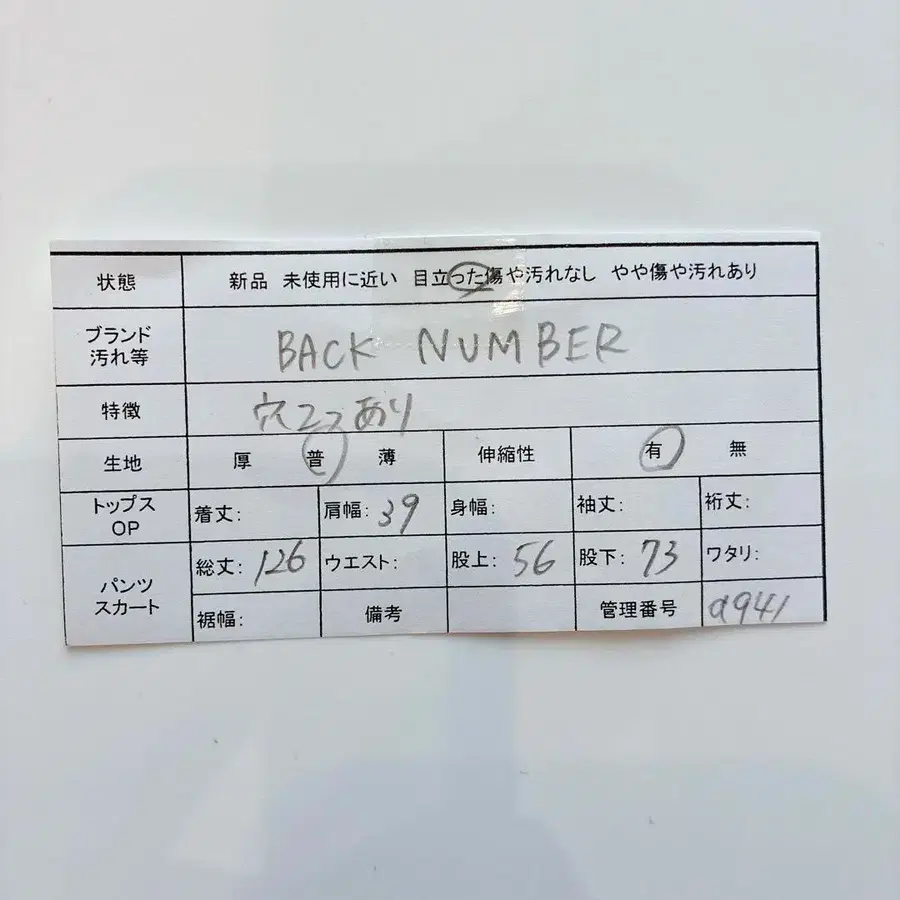 状態 新品 未使用に近い 目立った傷や汚れなし やや傷や汚れあり
ブランド
汚れ等
BACK NUMBER
特徴 穴2つあり
生地 厚 普 薄 伸縮性 有 無
トップス
OP
着丈: 肩幅: 39 身幅: 袖丈: 裄丈:
パンツ
スカート
総丈: 126 ウエスト: 股上: 56 股下: 73 ワタリ:
裾幅: 備考 管理番号 a941